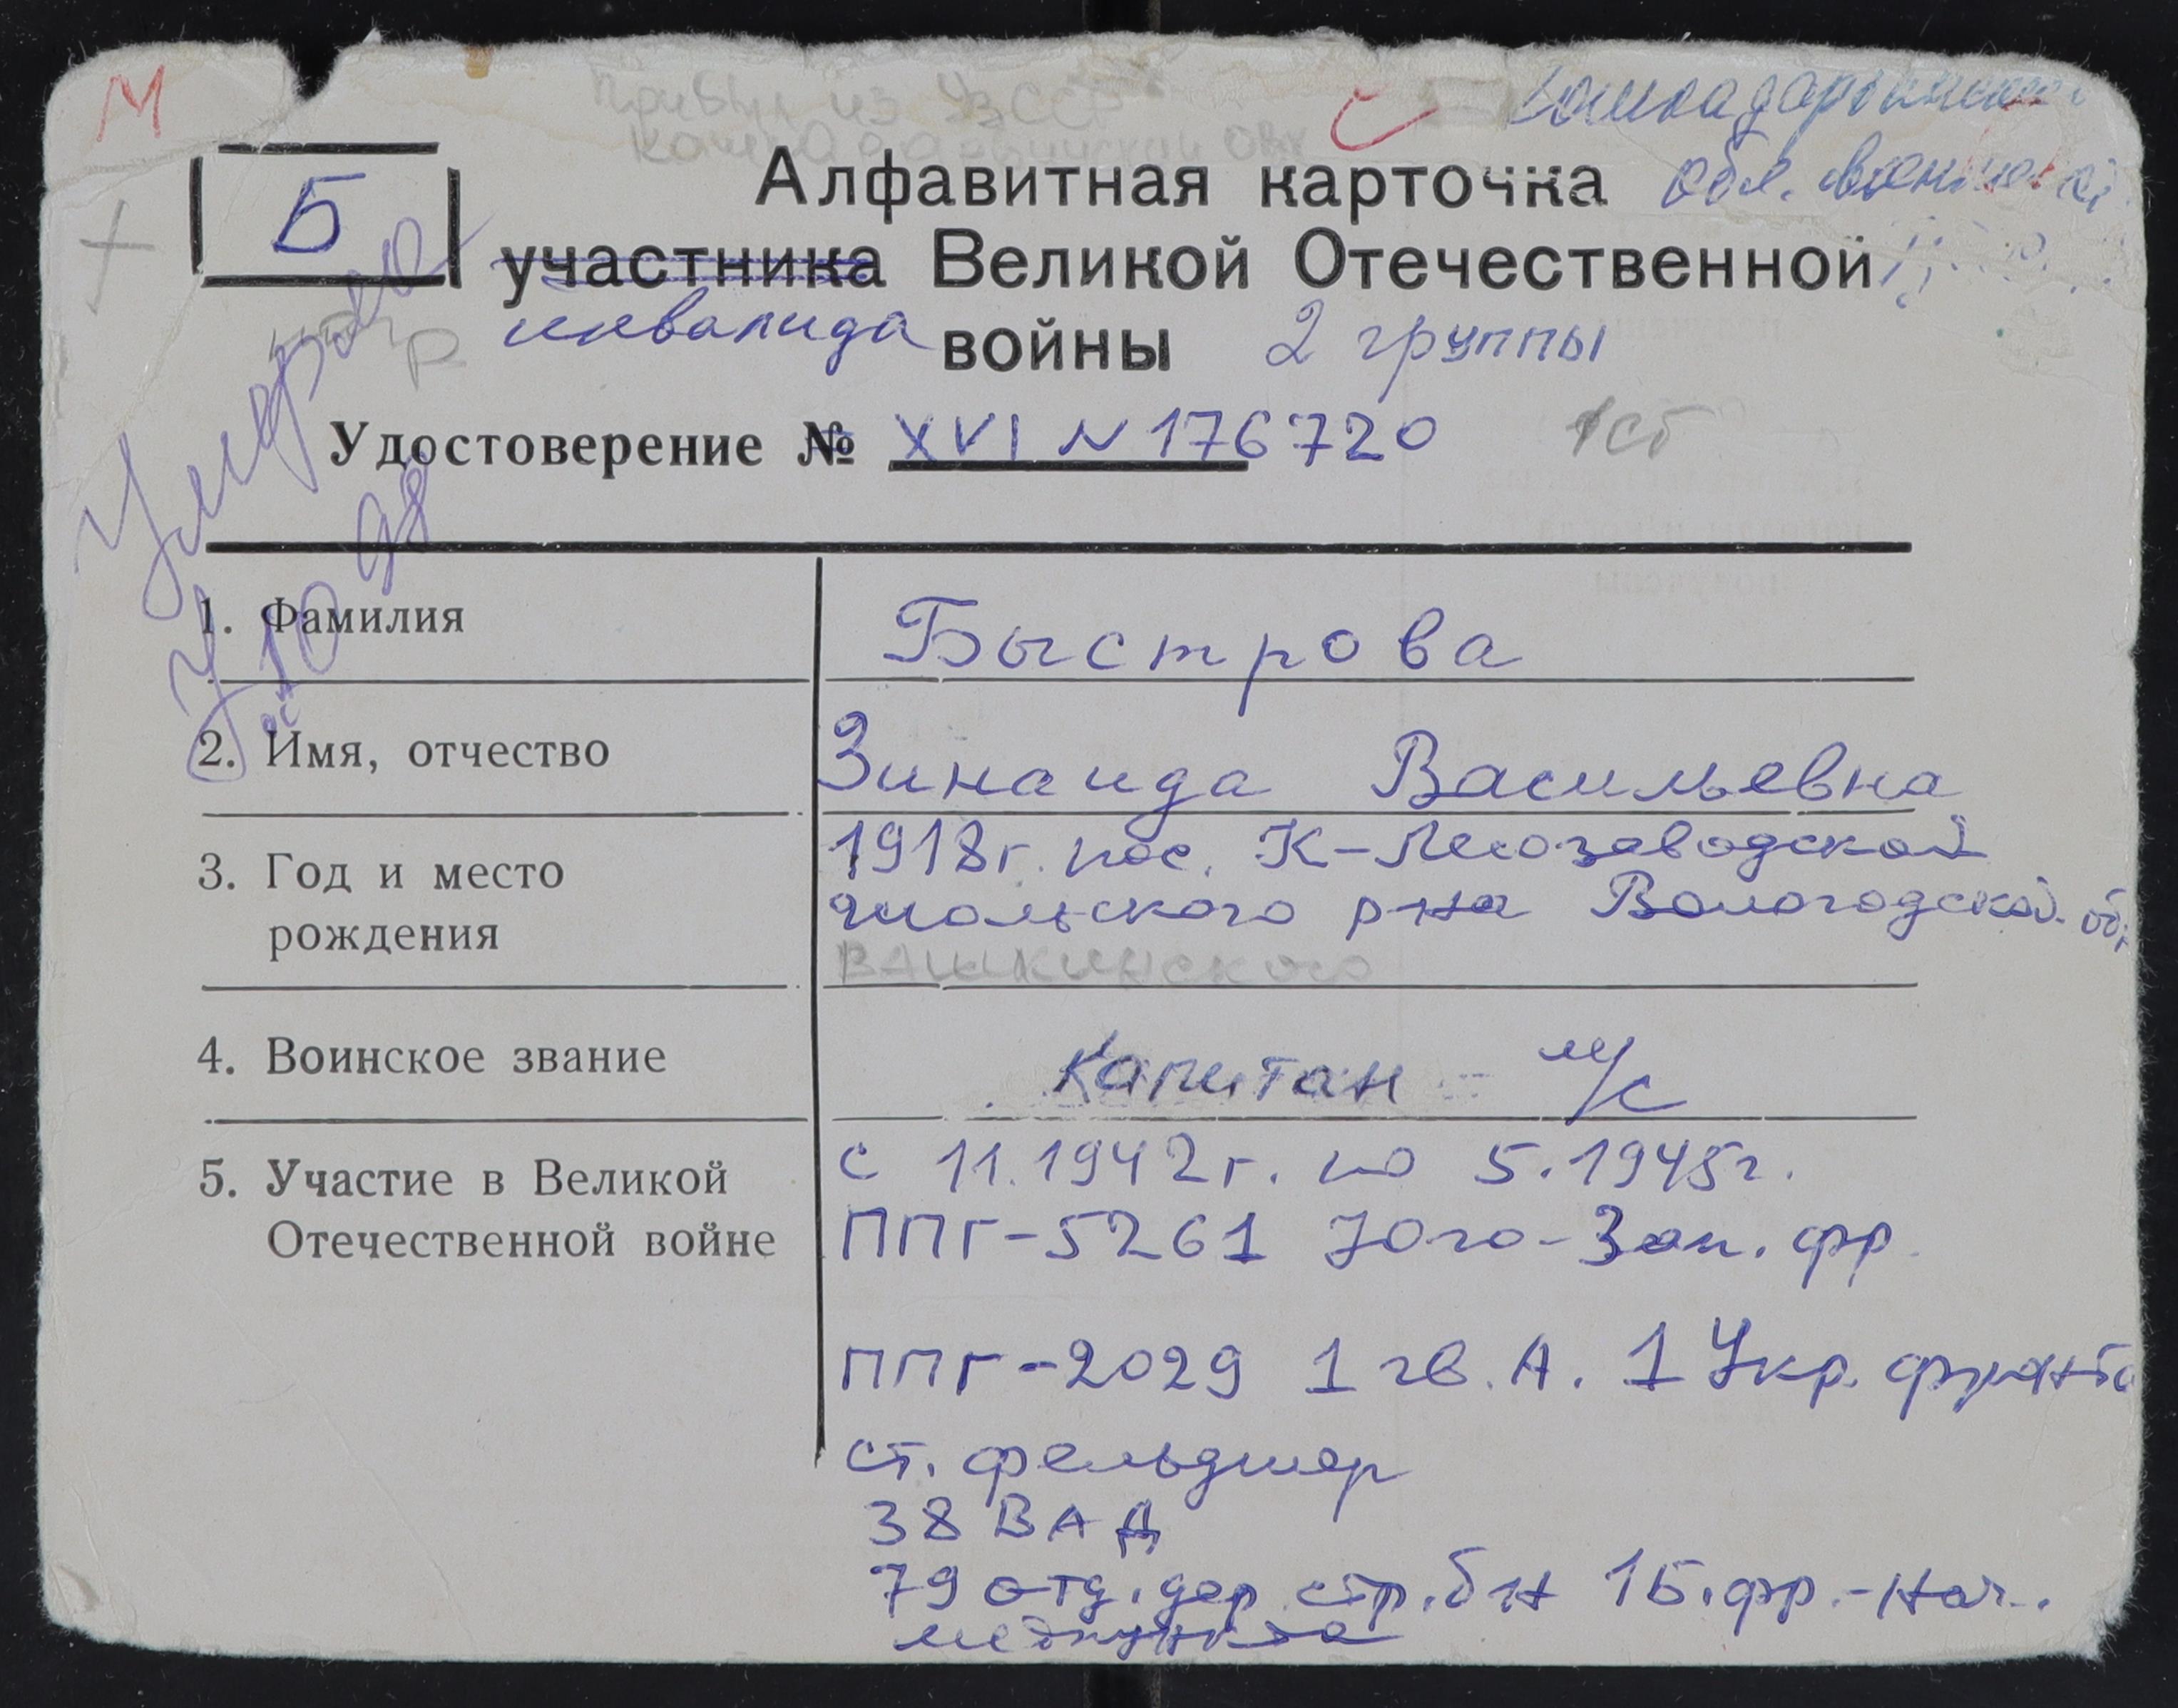 М
Прибыл из УзССР
Кашкадарьинской обл
С
Кашкадарьинской
обл. военком
Б
Алфавитная карточка
участника Великой Отечественной
инвалида войны 2 группы
Р
Удостоверение № XVI N 176720
1сб
Умерла
10 98
1. Фамилия
Быстрова
2. Имя, отчество
Зинаида Васильевна
3. Год и место рождения
1918г. пос. К-Лесозаводской
р-на Вологодской об
Вашкинского
4. Воинское звание
Капитан - м/с
5. Участие в Великой Отечественной войне
с 11.1942г. по 5.1945г.
ППГ-5261 Юго-Зап. фр.
ППГ-2029 1 гв. А. 1 Укр. фронта
ст. фельдшер
38 ВАД
79 отд. дор. стр. б-н 1Б. фр. - нач.
медпункта